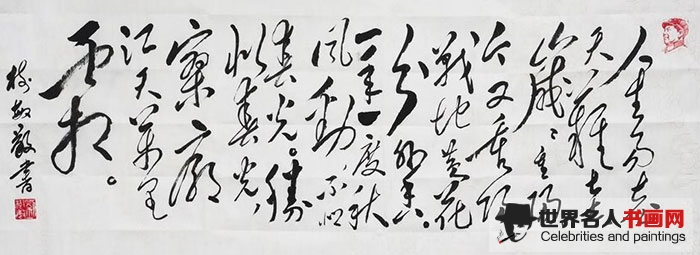 人生易老
天難老
歲々重陽
今又重陽
戰地黃花
分外香
一年一度秋
風勁不似
春光。勝
似春光，
寥廓
江天萬里
霜。
書
世界名人书画网
Celebrities and paintings